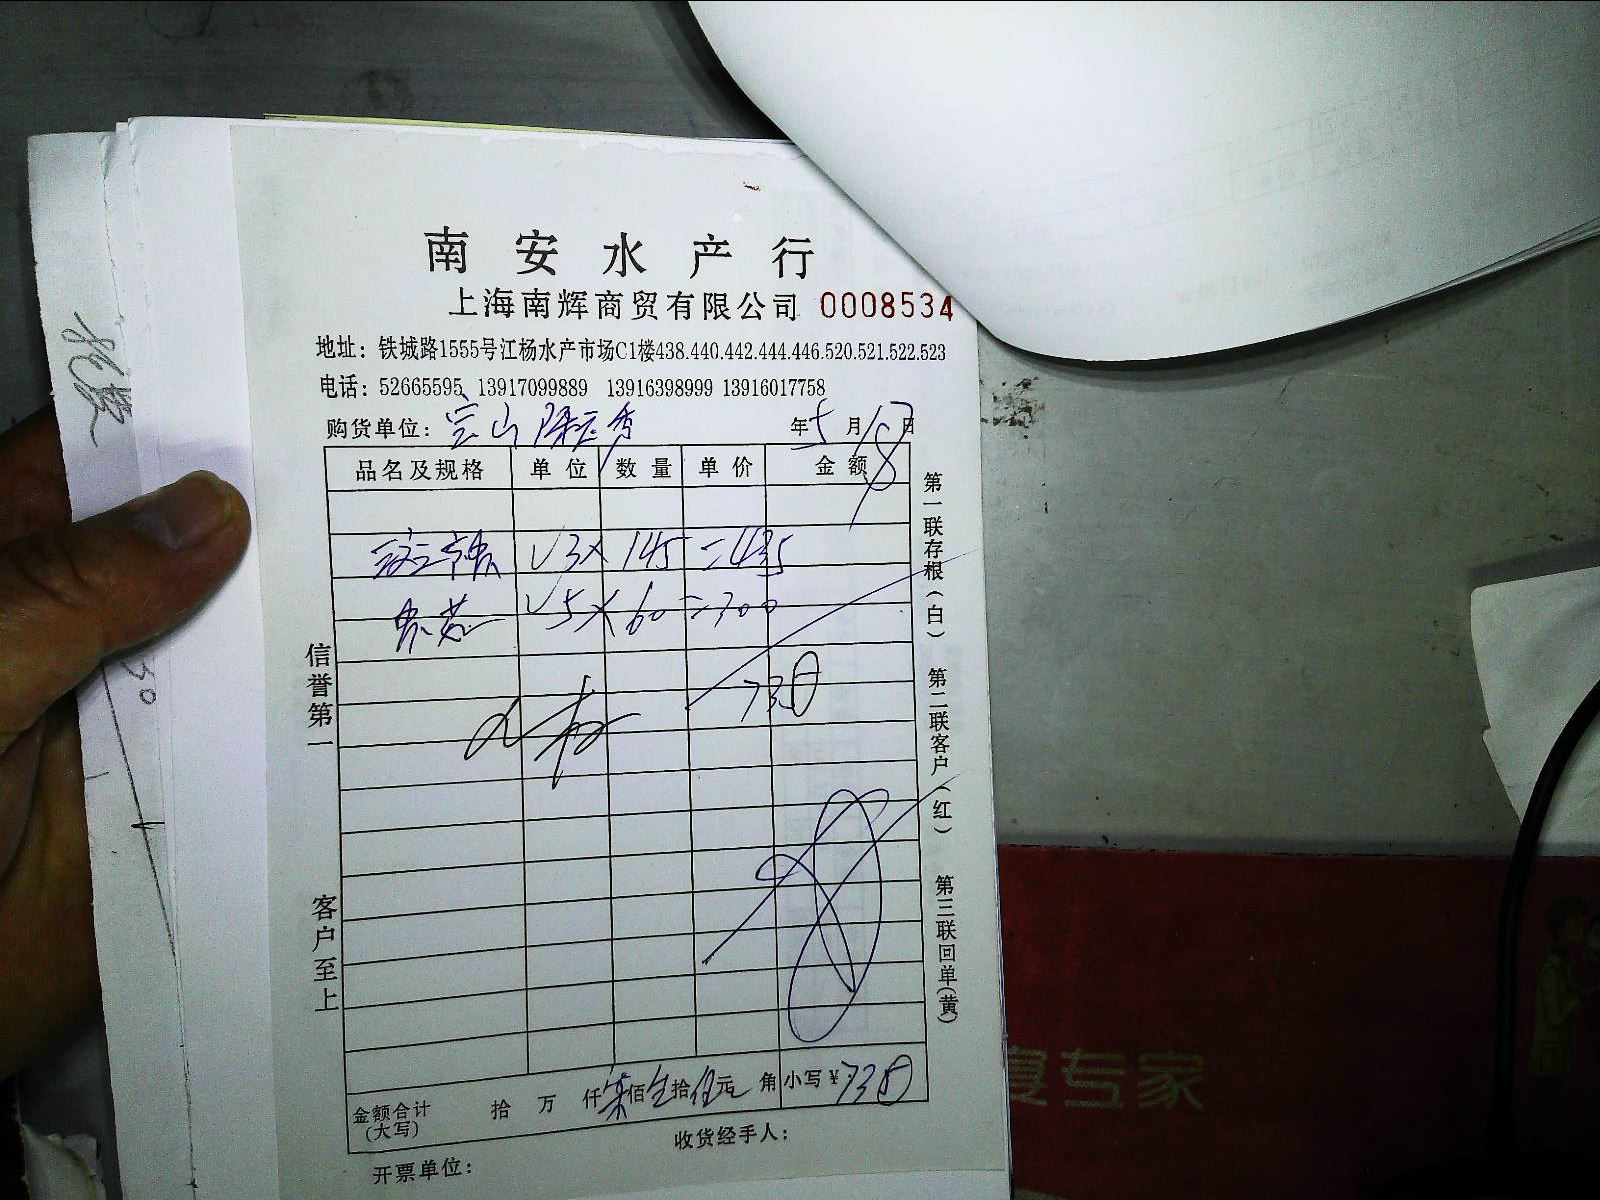 南安水产行
上海南辉商贸有限公司 0008534
地址：铁城路1555号江杨水产市场C1楼438.440.442.444.446.520.521.522.523
电话：52665595 13917099889 13916398999 13916017758
购货单位：宝山 年5月18日
品名及规格 单位 数量 单价 金额
√3×145=435
√5×60=300
735
金额合计(大写) 拾 万 仟柒佰叁拾伍元 角 小写¥735
开票单位： 收货经手人：
信誉第一 客户至上
第一联存根(白) 第二联客户(红) 第三联回单(黄)
专家